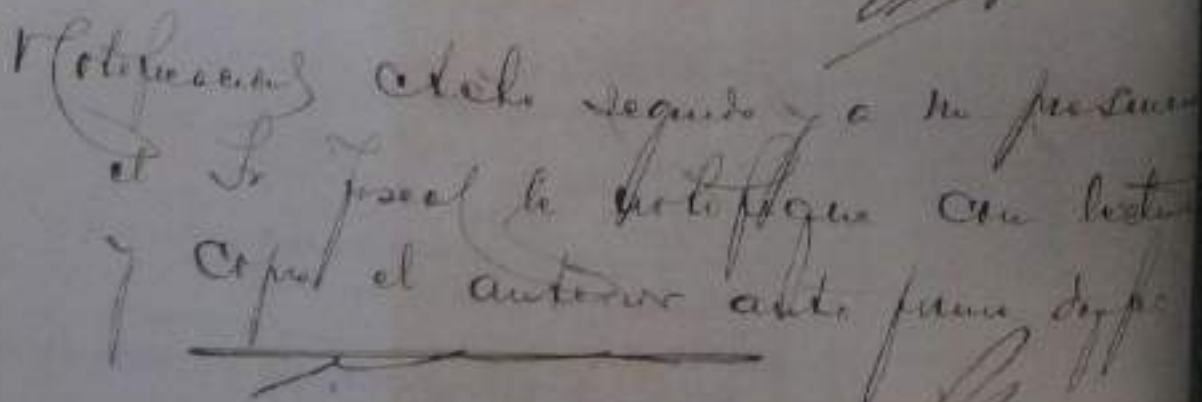 Notificacion Acto seguido y a mi presencia
el Sr Fiscal le notifique con lectura
y copia el anterior auto firma doy fe